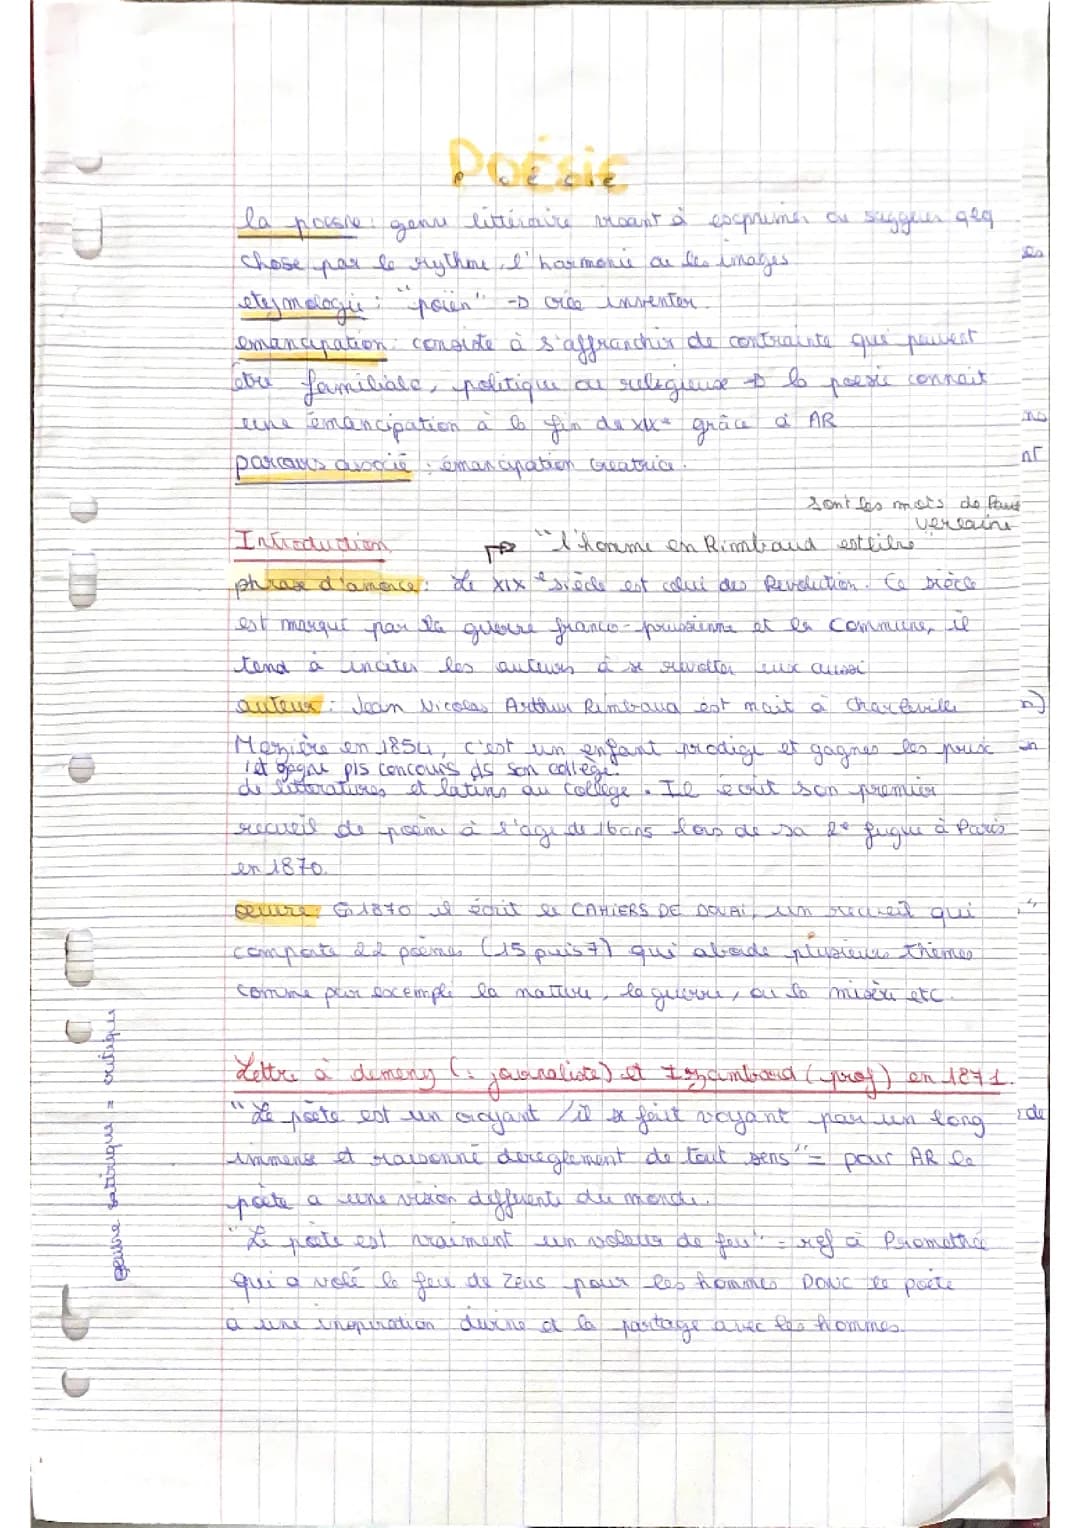 POÉSIE
la poésie : genre littéraire visant à exprimer ou suggerer qlq
chose par le rythme, l'harmonie ou les images
eteymologie : "poïen" → crée inventer.
emancipation : consiste à s'affranchir de contrainte qui peuvent
être familiale, politique ou religieuse → la poesie connait
une émancipation à la fin du XIXe grâce à AR
parcours associé : émancipation creatrice.
sont les mots de Paul
Verlaine
Introduction → "l'homme en Rimbaud est libre"
phrase d'amorce : Le XIXe siècle est celui des Revolution. Ce siècle
est marqué par la guerre franco-prussienne et la Commune, il
tend à inciter les auteurs à se revolter eux aussi
auteur : Jean Nicolas Arthur Rimbaud est nait à Charleville
Mezière en 1854, c'est un enfant prodige et gagnes les prix
et gagne pls concours ds son collège.
de litteratures et latins au collège. Il écrit son premier
recueil de poème à l'age de 16ans lors de sa 2e fugue à Paris
en 1870.
œuvre : En 1870 il écrit les CAHIERS DE DOUAI, un recueil qui
comporte 22 poèmes (15 puis 7) qui aborde plusieurs thèmes
comme par exemple la nature, la guerre, ou la misère etc.
œuvre satirique = critique
Lettre à demeny (: journaliste) et Izambard (prof) en 1871.
"Le poète est un croyant / il se fait voyant par un long
immense et raisonné dereglement de tout sens" = pour AR le
poète a une vision differente du monde.
"Le poète est vraiment un voleur de feu" = ref à Promethé
qui a volé le feu de Zeus pour les hommes DONC le poète
a une inspiration divine et la partage avec les hommes.